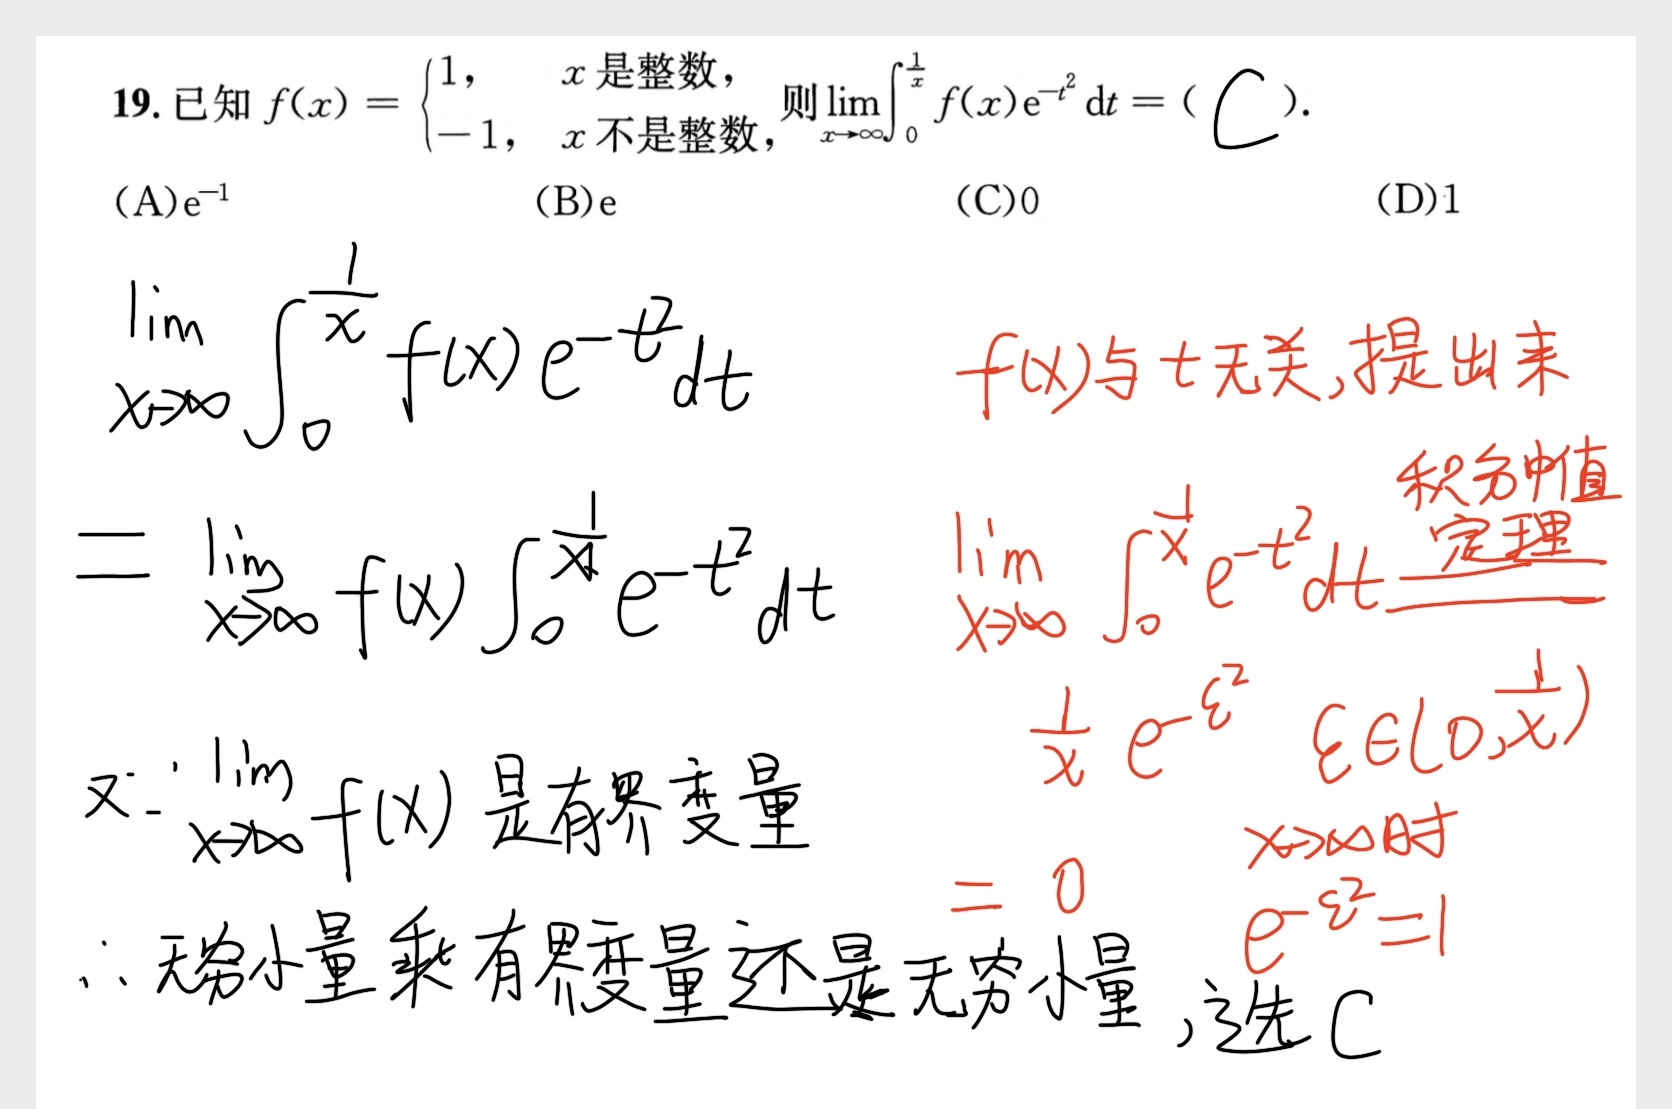 19. 已知 f(x) = { 1, x 是整数, -1, x 不是整数, 则 lim_{x→∞} ∫_0^{1/x} f(x)e^{-t²} dt = ( C ).
(A)e⁻¹ (B)e (C)0 (D)1
lim_{x→∞} ∫_0^{1/x} f(x) e^{-t²} dt
f(x)与t无关,提出来
= lim_{x→∞} f(x) ∫_0^{1/x} e^{-t²} dt
lim_{x→∞} ∫_0^{1/x} e^{-t²} dt 积分中值定理 =
1/x e^{-ξ²} ξ∈(0,1/x)
x→∞时
= 0 e^{-ξ²}=1
又∵ lim_{x→∞} f(x) 是有界变量
∴ 无穷小量乘有界变量还是无穷小量,选C